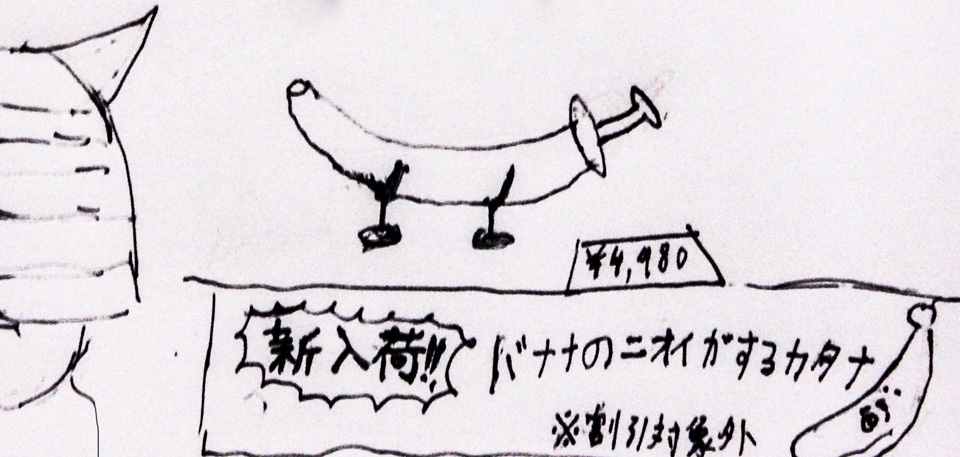 ¥4,980
新入荷!! バナナのニオイがするカタナ
※割引対象外